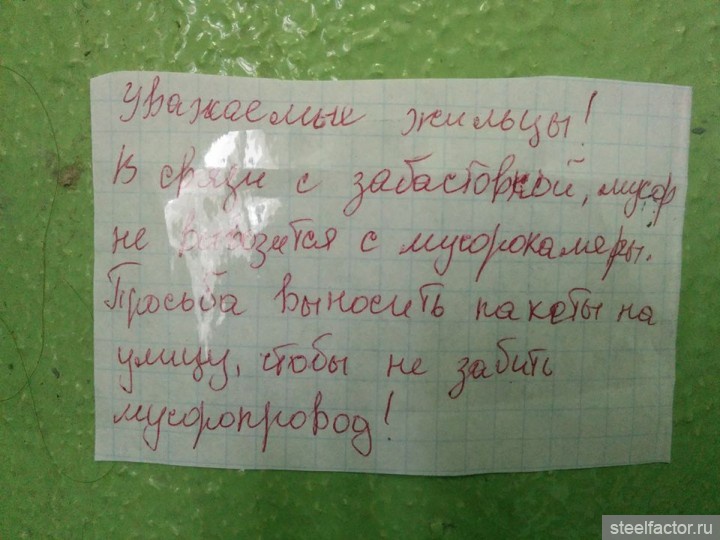 Уважаемые жильцы!
В связи с забастовкой, мусор
не вывозится с мусорокамеры.
Просьба выносить пакеты на
улицу, чтобы не забить
мусоропровод!
steelfactor.ru